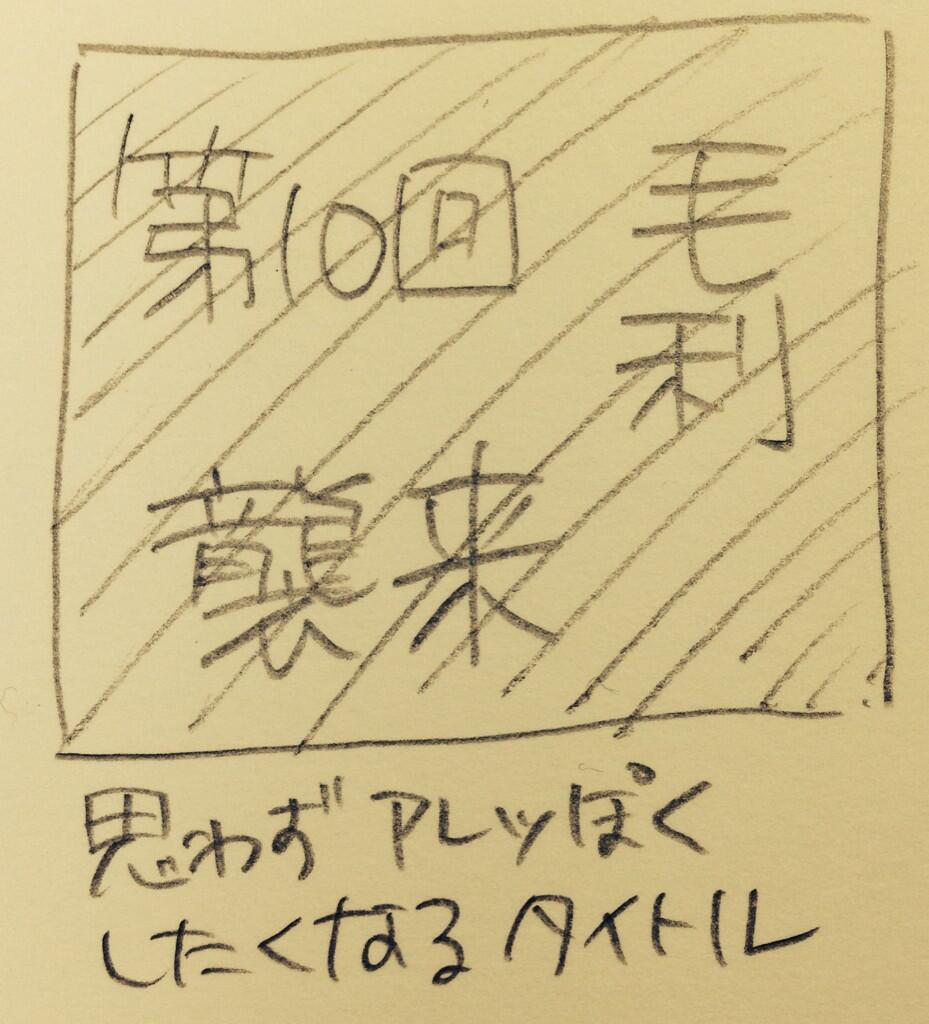 第10回
毛利
襲来
思わずアレッぽく
したくなるタイトル